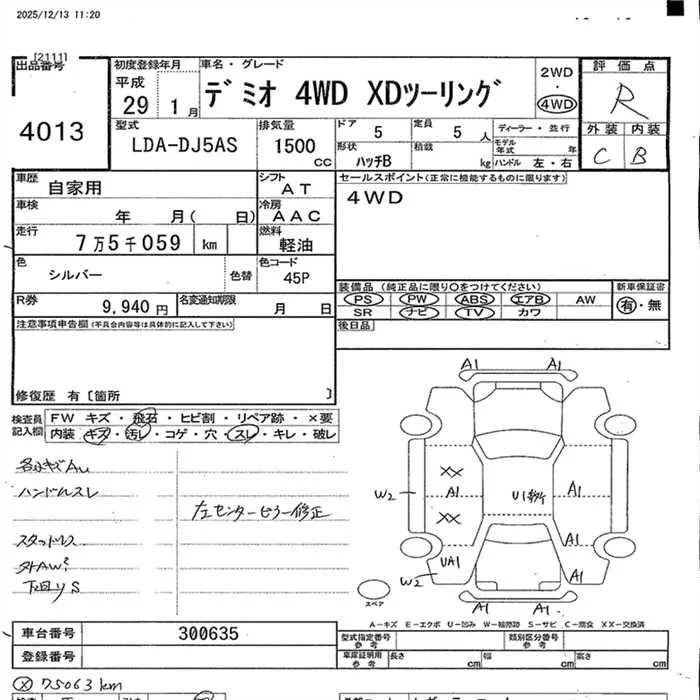 2025/12/13 11:20
[2111]
出品番号
4013
初度登録年月
平成
29 1月
車名・グレード
デミオ 4WD XDツーリング
2WD
・
4WD
評価点
R
外装 内装
C B
型式
LDA-DJ5AS
排気量
1500
cc
ドア 5
定員 5 人
形状 ハッチB
積載 kg
ディーラー・並行
モデル年式 年
ハンドル 左・右
車歴 自家用
シフト AT
車検 年 月( 日)
冷房 AAC
走行 7万5千059 km
燃料 軽油
色 シルバー
色替
色コード 45P
R券 9,940円
名変通知期限 月 日
セールスポイント(正常に機能するものに限ります)
4WD
装備品 (純正品に限り○をつけてください)
PS PW ABS エアB AW
SR ナビ TV カワ
新車保証書
有・無
後日品
注意事項申告欄(不具合内容等は具体的に記入して下さい)
修復歴 有〔箇所 〕
検査員
記入欄
FW キズ・飛石・ヒビ割・リペア跡・×要
内装・キズ・汚レ・コゲ・穴・スレ・キレ・破レ
ハンドルスレ
左センターピラー修正
スタッドレス
下回りS
A1 A1
XX
A1
XX
W2
U1
A1
A1
UA1
W2
A1
A1 A1
スペア
A-キズ E-エクボ U-凹み W-補修跡 S-サビ C-腐食 XX-交換済
車台番号 300635
登録番号
型式指定番号
参考
類別区分番号
参考
車庫証明用
参考
長さ cm
幅 cm
高さ cm
75063km